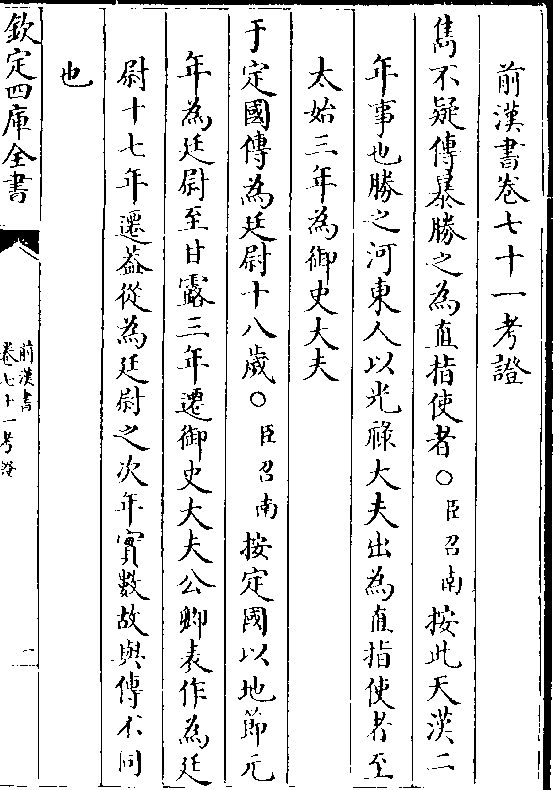 前漢書卷七十一考證
雋不疑傳暴勝之為直指使者○臣召南按此天漢二
年事也勝之河東人以光祿大夫出為直指使者至
太始三年為御史大夫
于定國傳為廷尉十八歲○臣召南按定國以地節元
年為廷尉至甘露三年遷御史大夫公卿表作為廷
尉十七年遷葢從為廷尉之次年實數故與傳不同
也
欽定四庫全書
前漢書
卷七十一考證
一